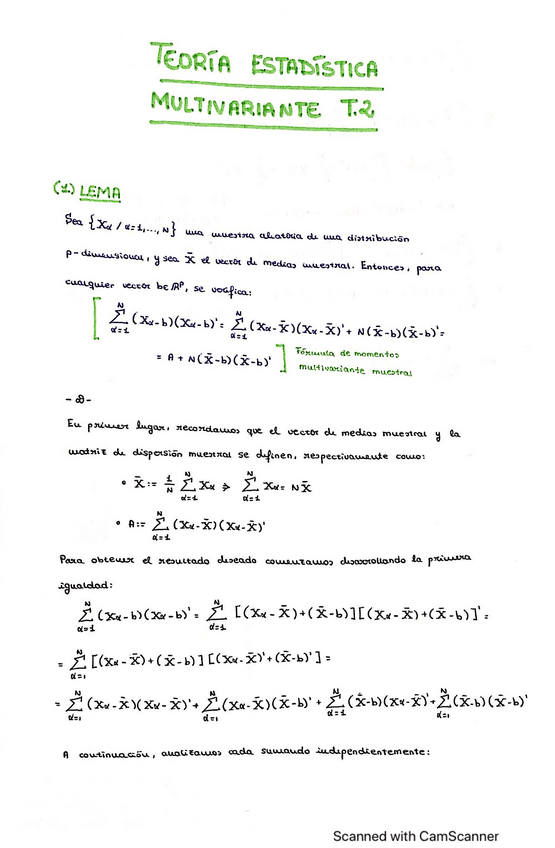 TEORÍA ESTADÍSTICA
MULTIVARIANTE T.2
(1) LEMA
Sea {Xα / α=1,...,N} una muestra aleatoria de una distribución
p-dimensional, y sea X̄ el vector de medias muestral. Entonces, para
cualquier vector b∈ℝᵖ, se verifica:
[ ∑_{α=1}^{N} (Xα-b)(Xα-b)' = ∑_{α=1}^{N} (Xα-X̄)(Xα-X̄)' + N(X̄-b)(X̄-b)' =
= A + N(X̄-b)(X̄-b)' ] Fórmula de momentos
multivariante muestral
-D-
En primer lugar, recordamos que el vector de medias muestral y la
matriz de dispersión muestral se definen, respectivamente como:
• X̄ := 1/N ∑_{α=1}^{N} Xα ⇒ ∑_{α=1}^{N} Xα = NX̄
• A := ∑_{α=1}^{N} (Xα-X̄)(Xα-X̄)'
Para obtener el resultado deseado comenzamos desarrollando la primera
igualdad:
∑_{α=1}^{N} (Xα-b)(Xα-b)' = ∑_{α=1}^{N} [(Xα-X̄)+(X̄-b)][(Xα-X̄)+(X̄-b)]' =
= ∑_{α=1}^{N} [(Xα-X̄)+(X̄-b)][(Xα-X̄)'+(X̄-b)'] =
= ∑_{α=1}^{N} (Xα-X̄)(Xα-X̄)' + ∑_{α=1}^{N} (Xα-X̄)(X̄-b)' + ∑_{α=1}^{N} (X̄-b)(Xα-X̄)' + ∑_{α=1}^{N} (X̄-b)(X̄-b)'
A continuación, analizamos cada sumando independientemente:
Scanned with CamScanner